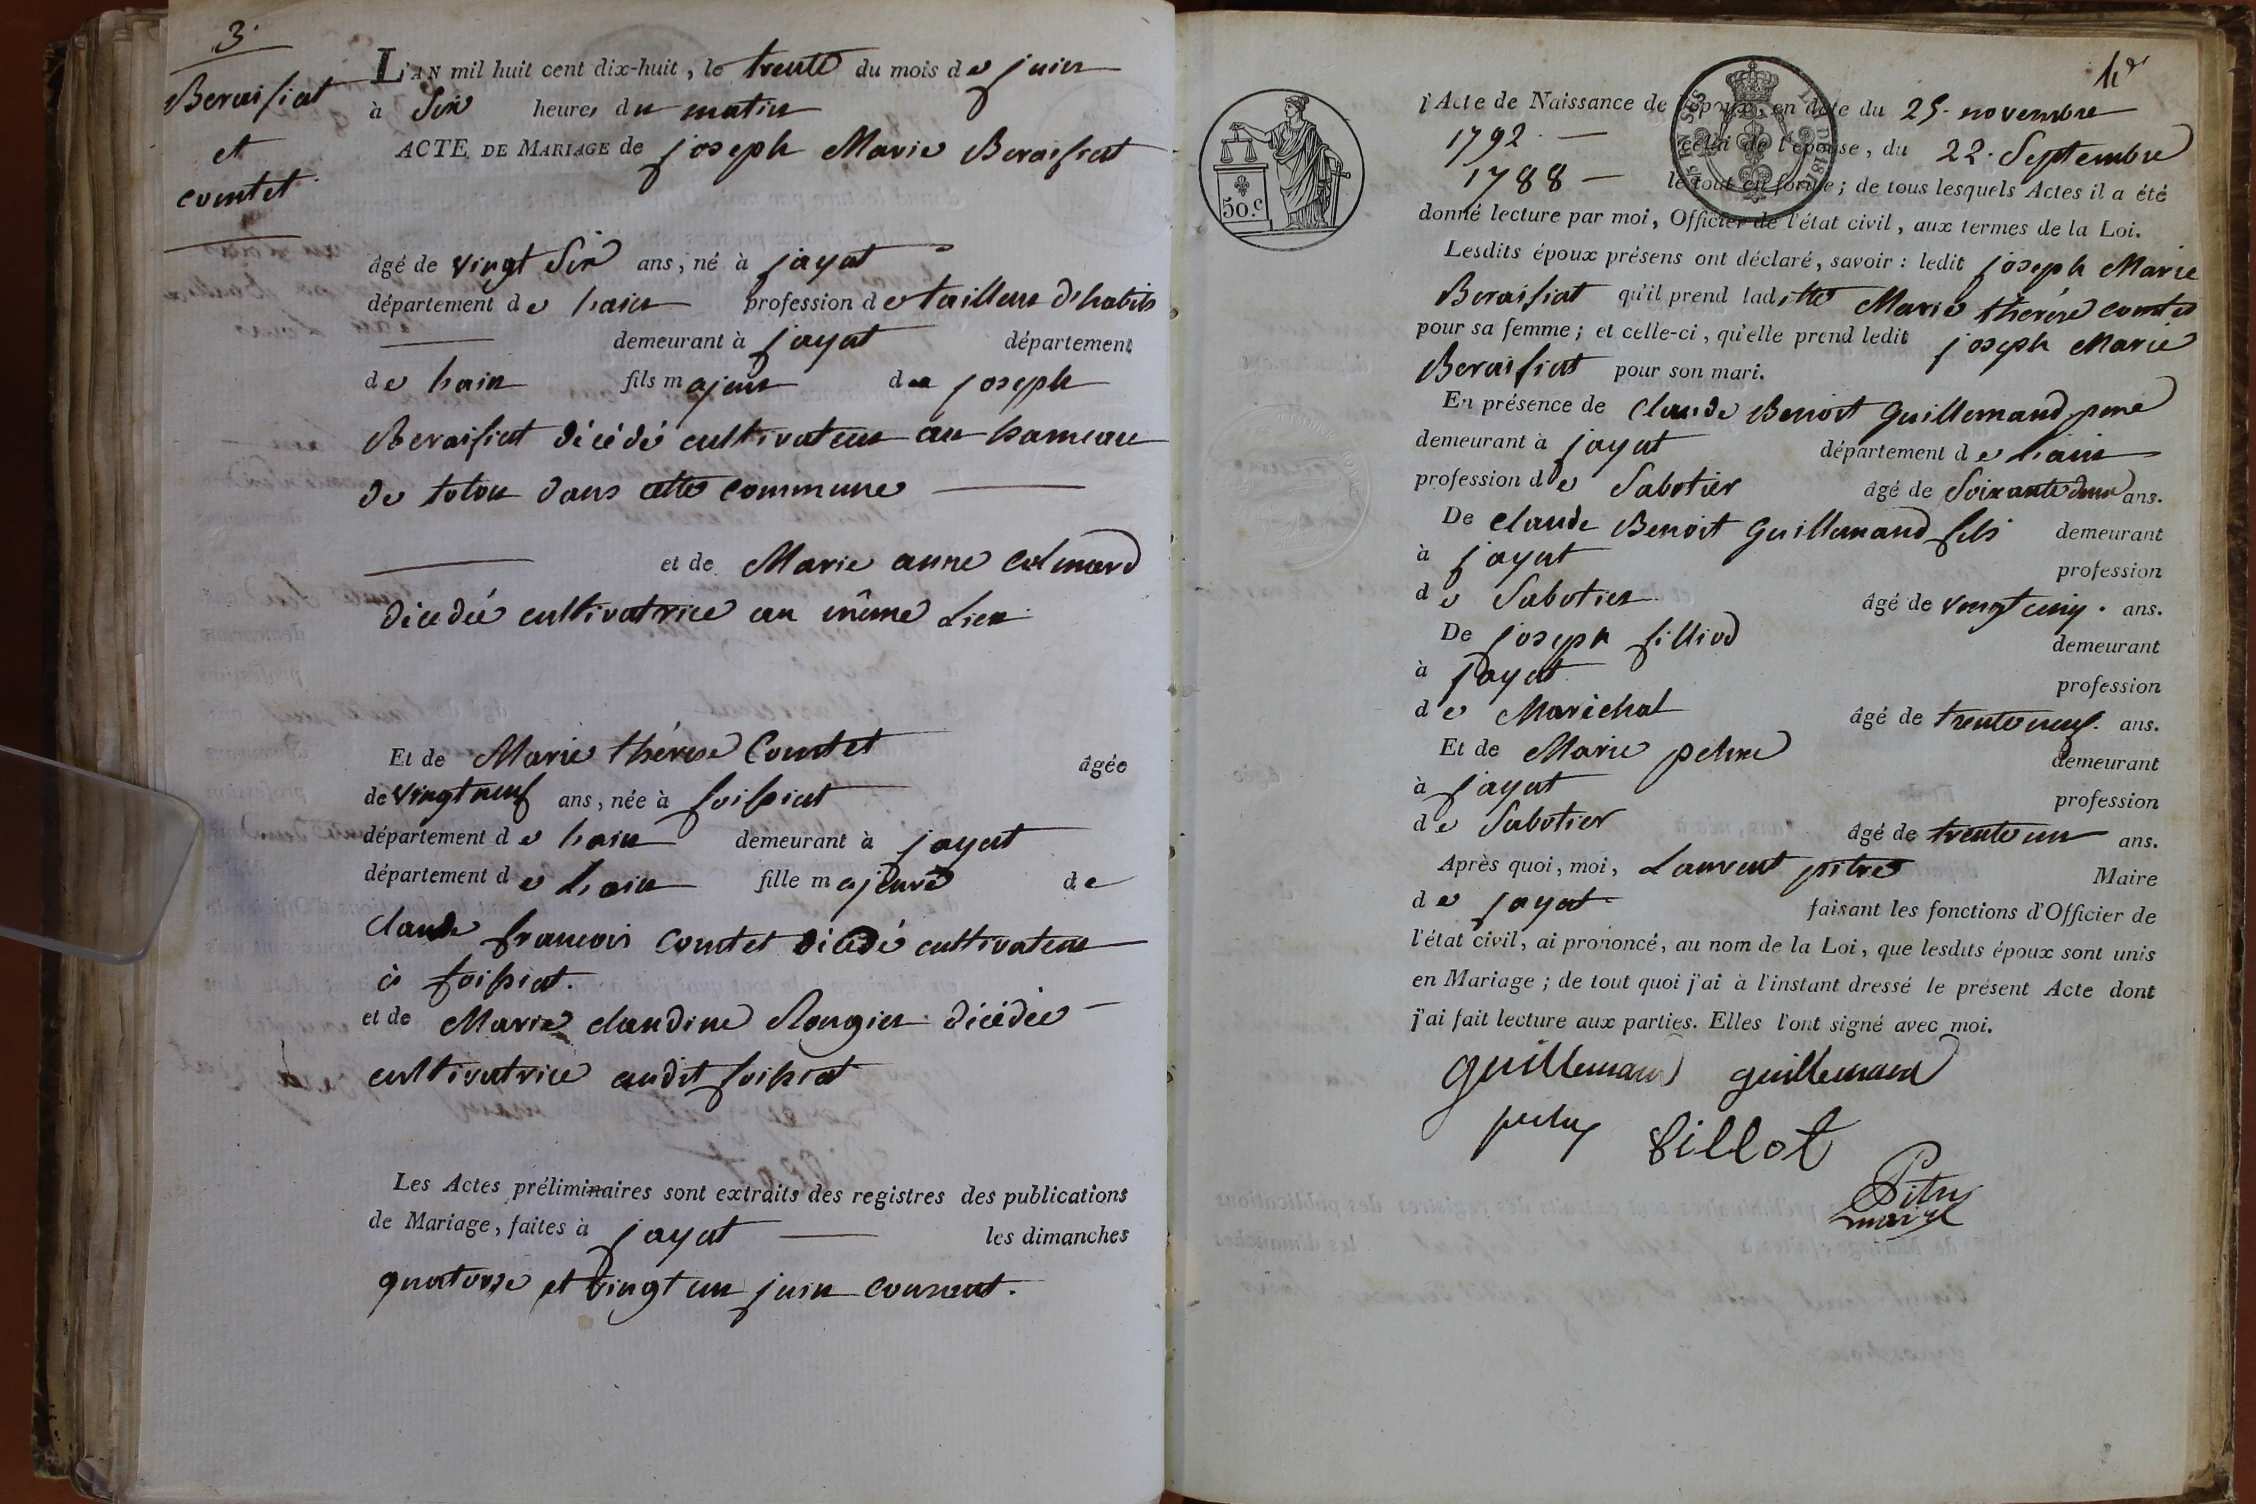 3.
Beraissiat
et
Comtet
L'AN mil huit cent dix-huit, le trente du mois de juin
à Six heures du matin
ACTE DE MARIAGE de joseph Marie Beraissiat
âgé de vingt Six ans, né à jayat
département de hain profession de tailleur d'habits
demeurant à jayat département
de hain fils majeur de joseph
Beraissiat décédé cultivateur au hameau
de tolon dans cette commune
et de Marie anne Colmard
décédée cultivatrice au même Lieu
Et de Marie thérese Comtet âgée
de vingt neuf ans, née à foissiat
département de hain demeurant à jayat
département de hain fille majeure de
claude francois Comtet décédé cultivateur
à foissiat.
et de Marie claudine Rongier décédée
cultivatrice audit foissiat
Les Actes préliminaires sont extraits des registres des publications
de Mariage, faites à jayat les dimanches
quatorze et vingt un juin courant.
50.c
l'Acte de Naissance de l'époux, en date du 25 novembre
1792 celui de l'épouse, du 22 Septembre
1788 le tout en forme; de tous lesquels Actes il a été
donné lecture par moi, Officier de l'état civil, aux termes de la Loi.
Lesdits époux présens ont déclaré, savoir: ledit joseph Marie
Beraissiat qu'il prend laditte Marie thérese comtet
pour sa femme; et celle-ci, qu'elle prend ledit joseph Marie
Beraissiat pour son mari.
En présence de Claude Benoit Guillemand pere
demeurant à jayat département de hain
profession de Sabotier âgé de Soixante deux ans.
De claude Benoit Guillemand fils demeurant
à jayat profession
de Sabotier âgé de vingt cinq. ans.
De joseph filliod demeurant
à jayat profession
de Maréchal âgé de trente neuf. ans.
Et de Marie demeurant
à jayat profession
de Sabotier âgé de trente un ans.
Après quoi, moi, Laurent pitre Maire
de jayat faisant les fonctions d'Officier de
l'état civil, ai prononcé, au nom de la Loi, que lesdits époux sont unis
en Mariage; de tout quoi j'ai à l'instant dressé le présent Acte dont
j'ai fait lecture aux parties. Elles l'ont signé avec moi.
guillemand guillemand
fillot
Pitre
maire